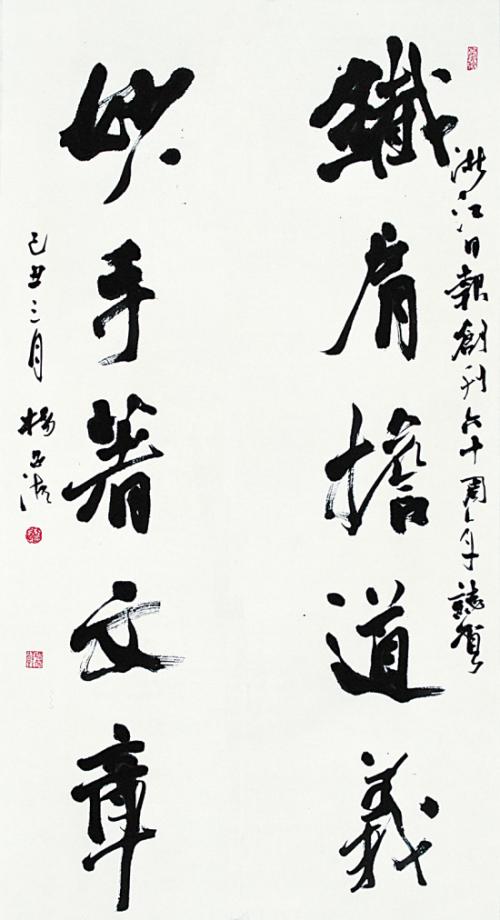 浙江日報創刊六十周年誌賀
鐵肩擔道義
妙手著文章
己丑三月 楊西湖